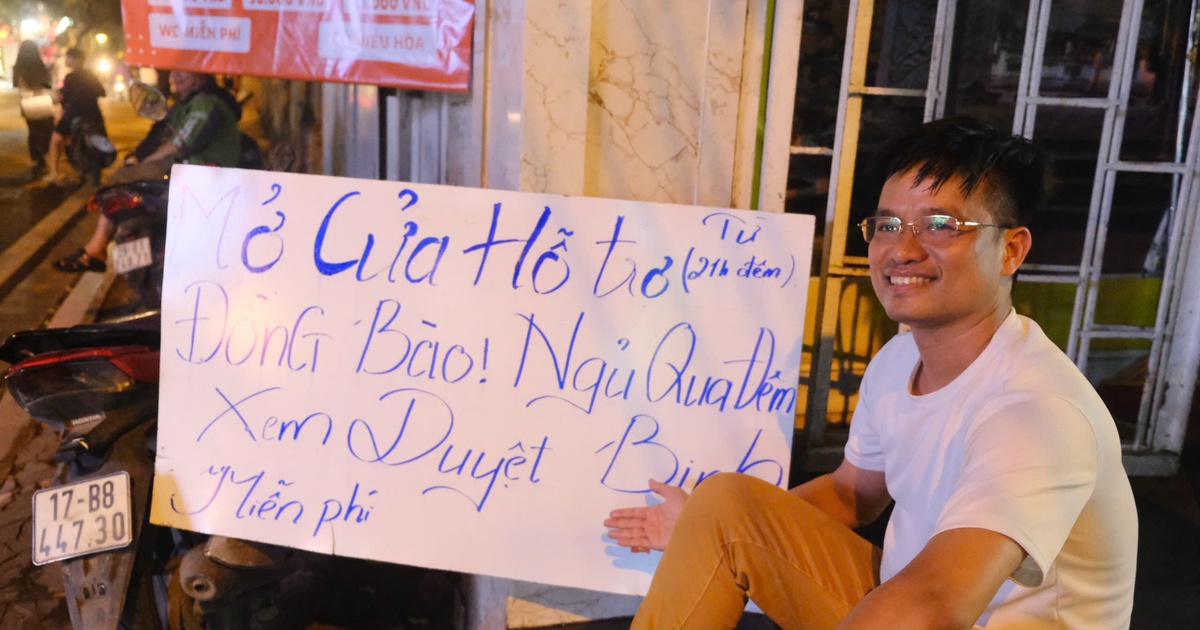 WC MIỄN PHÍ
Mở Cửa Hỗ trợ Từ (21h đêm)
ĐỒNG BÀO! Ngủ Qua Đêm
Xem Duyệt Binh
Miễn phí
17-B8
447.30